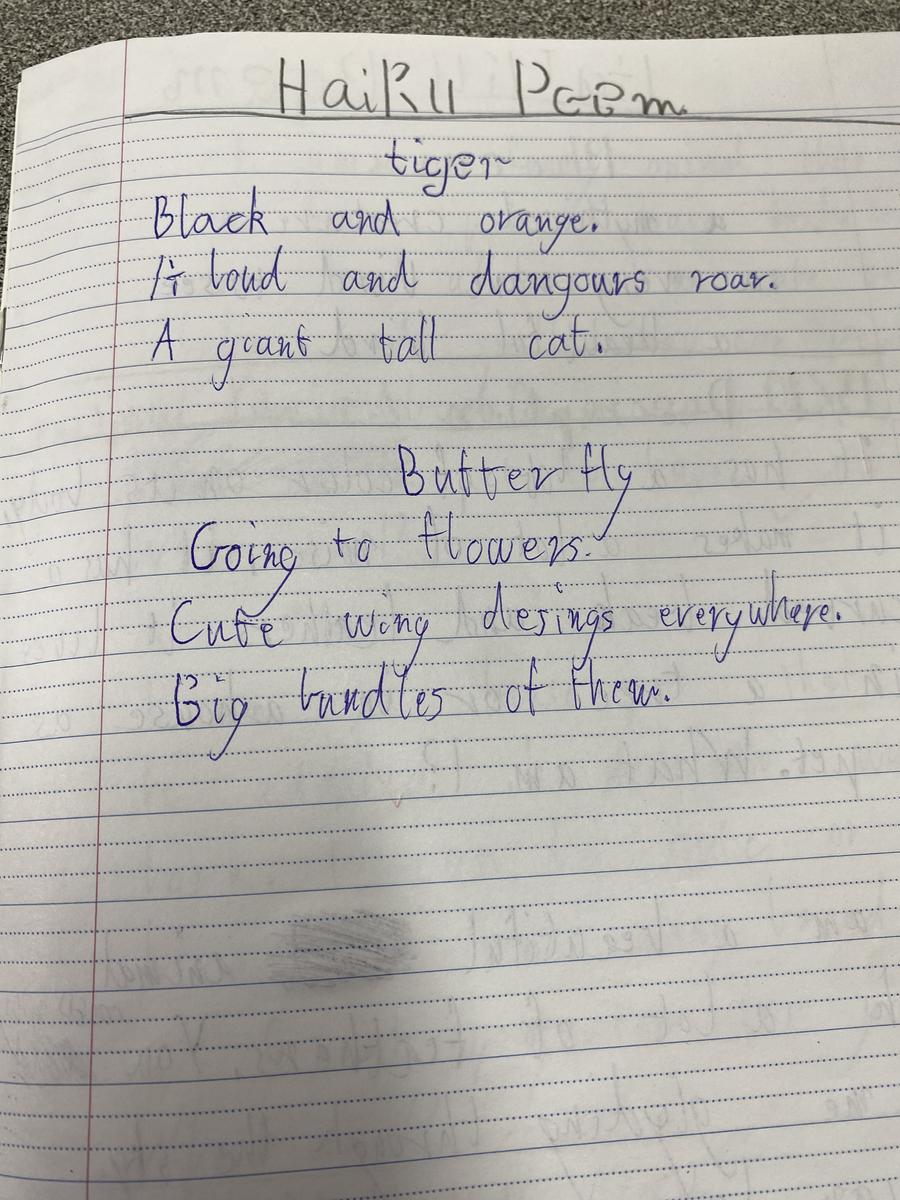 HaiKu Poem
tiger
Black and orange.
A loud and dangours roar.
A giant tall cat.
Butterfly
Going to flowers.
Cute wing desings everywhere.
Big bundles of them.